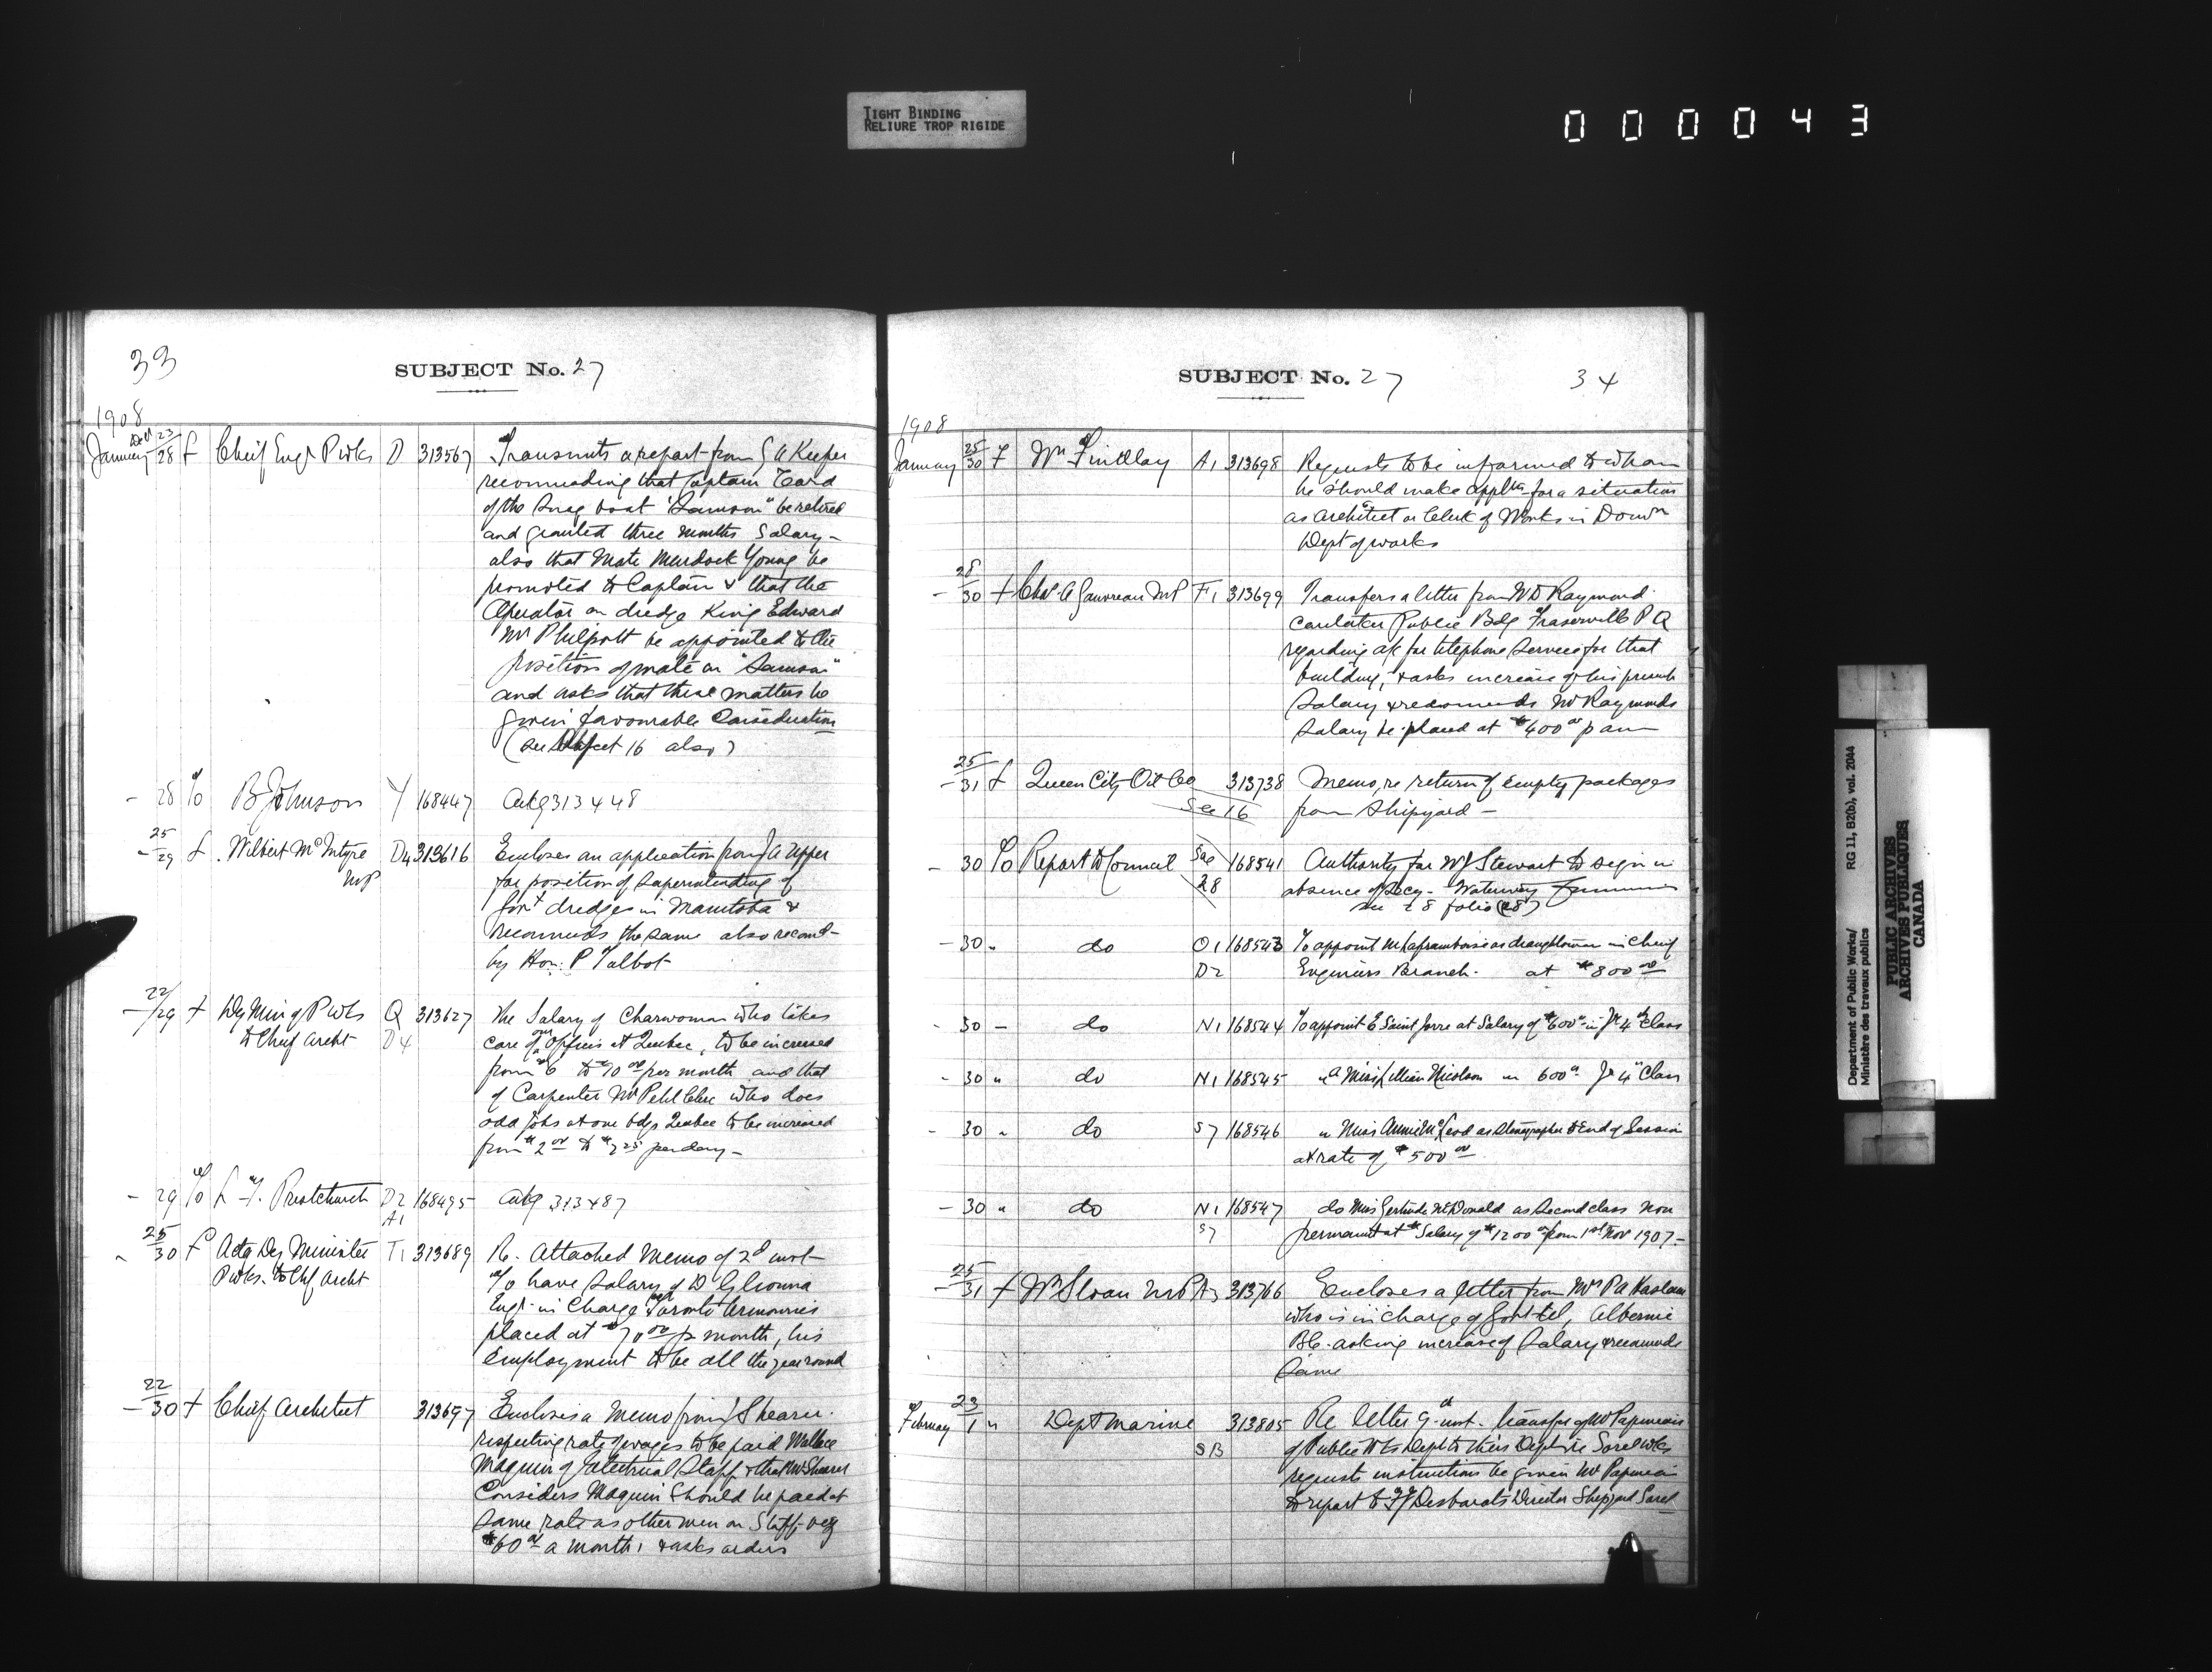 TIGHT BINDING
RELIURE TROP RIGIDE
000043
33
SUBJECT No. 27
1908
January Dec 23/28 f Chief Engr P Wks D 313567 Transmits a report from G A Keefer
recommending that Captain
of the Snag boat "Samson" be retired
and granted three months Salary -
also that Mate Murdock Young be
promoted to Captain & that the
Operator on dredge King Edward
Mr Philpott be appointed to the
position of mate on "Samson"
and asks that these matters be
given favourable Consideration
(see Subject 16 also)
- 28 To B Johnson Y 168447 Ackg 313448
- 25/29 f Wilbert McIntyre D4 313616 Encloses an application from J A Upper
MP for position of Superintending of
Govt dredges in Manitoba &
recommends the same also recomd
by Hon: P Talbot
- 22/29 f Dy Min of P Wks Q 313627 The Salary of Charwoman who takes
to Chief Archt D4 care of our Offices at Quebec, to be increased
from $6 to 10 00 per month and that
of Carpenter Mr Petitclerc who does
odd jobs at our bdgs Quebec to be increased
from $2 00 to $2 25 per day -
- 29 To L F. Prestchurch D2 168495 Ackg 313487
A1
25/30 f Actg Dep Minister T1 313689 Re. Attached Memo of 2d inst
P Wks. to Chf Archt To have Salary of D
Engr in Charge of Toronto Armouries
placed at $70 00 p month, his
Employment to be all the year round
- 22/30 f Chief Architect 313697 Encloses a Memo from J Shearer
respecting rate of wages to be paid Wallace
Maguin of Electrical Staff & that Mr Shearer
Considers Maguin Should be paid at
Same rate as other men on Staff viz
$60 00 a month, & asks orders
SUBJECT No. 27
34
1908
January 25/30 f Wm Findlay A1 313698 Requests to be informed to whom
he should make appltn for a situation
as Architect or Clerk of Works in Domn
Dept of works
- 28/30 f Chs. A Gauvreau MP F1 313699 Transfers a letter from W D Raymond
Caretaker Public Bdg Fraserville P Q
regarding a/c for telephone Service for that
building, & asks increase of his present
Salary & recommends Mr Raymonds
Salary be placed at $400 00 p am
- 25/31 f Queen City Oil Co 313738 Memo, re return of Empty packages
See 16 from Shipyard -
- 30 To Report to Council See 168541 Authority for W J Stewart to sign in
28 absence of Secy - Waterway
see 28 folio (28)
- 30 " do O1 168543 To appoint M Laframboise as draughtsman in Chief
D2 Engineers Branch. at $800 00
- 30 - do N1 168544 To appoint E Saint Jorre at Salary of $600 00 in Jr 4th Class
- 30 " do N1 168545 " Miss Lillian Nicolson " 600 00 Jr 4th Class
- 30 " do S7 168546 " Miss Annie McLeod as Stenographer to End of Session
at rate of $500 00
- 30 " do N1 168547 do Miss Gertrude McDonald as Second class non
S7 permanent at Salary of $1200 00 from 1st Nov 1907 -
- 25/31 f Wm Sloan MP A3 313766 Encloses a letter from Mrs P A Haslam
who is in charge of Govt tel, Alberni
BC. asking increase of Salary & recommends
Same
February 23/1 " Dept Marine 313805 Re letter 9th inst. transfer of Mr Papineau
SB of Public Wks Dept to their Dept re Sorel Wks
requests instructions be given Mr Papineau
to report to G J Desbarats Director Shipyard Sorel
Department of Public Works/ RG 11, B2(b), vol. 2044
Ministère des travaux publics
PUBLIC ARCHIVES
ARCHIVES PUBLIQUES
CANADA